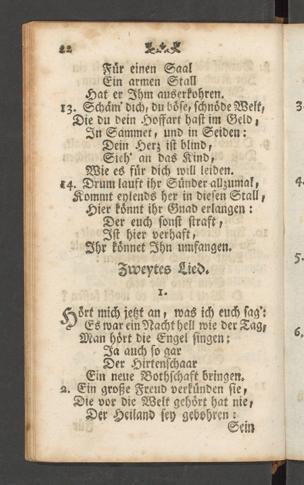 22
Für einen Saal
Ein armen Stall
Hat er Ihm auserkohren.
13. Schäm' dich, du böse, schnöde Welt,
Die du dein Hoffart hast im Geld,
In Sammet, und in Seiden:
Dein Herz ist blind,
Sieh' an das Kind,
Wie es für dich will leiden.
14. Drum lauft ihr Sünder allzumal,
Kommt eylends her in diesen Stall,
Hier könnt ihr Gnad erlangen:
Der euch sonst straft,
Ist hier verhaft,
Ihr könnet Ihn umfangen.
Zweytes Lied.
1.
Hört mich jetzt an, was ich euch sag':
Es war ein Nacht hell wie der Tag,
Man hört die Engel singen:
Ja auch so gar
Der Hirtenschaar
Ein neue Bothschaft bringen.
2. Ein große Freud verkünden sie,
Die vor die Welt gehört hat nie,
Der Heiland sey gebohren:
Sein
3.
4.
5.
6.